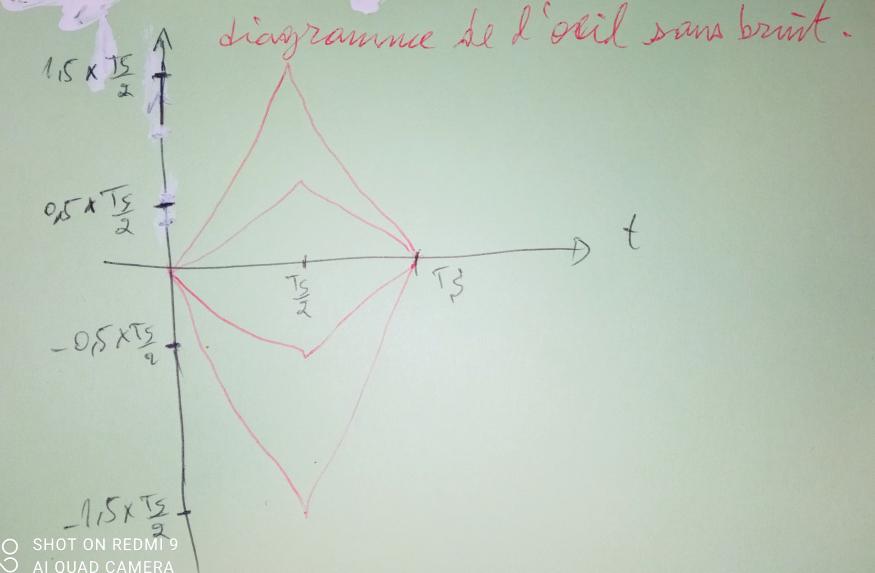 diagramme de l'oeil sans bruit.
1,5 x Ts/2
0,5 x Ts/2
t
Ts/2
Ts
-0,5 x Ts/2
-1,5 x Ts/2
SHOT ON REDMI 9
AI QUAD CAMERA